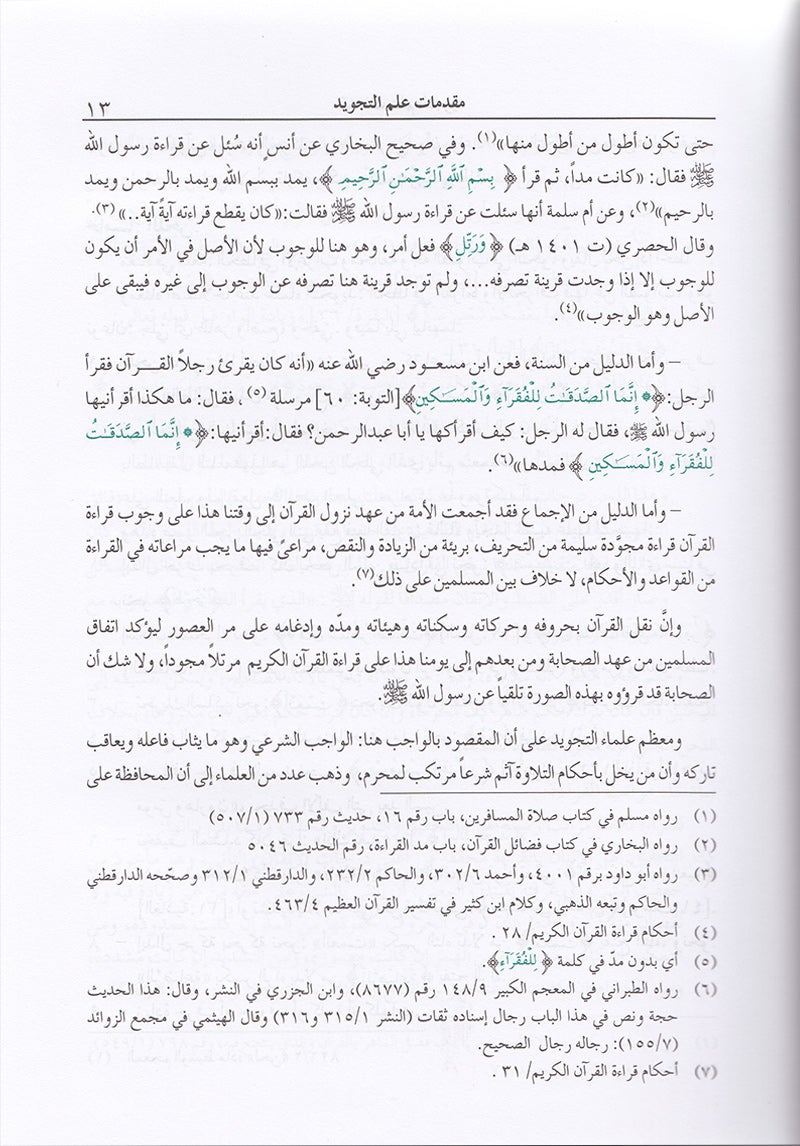 مقدمات علم التجويد ١٣
حتى تكون أطول من أطول منها»(١). وفي صحيح البخاري عن أنسٍ أنه سُئل عن قراءة رسول الله
ﷺ فقال: «كانت مداً، ثم قرأ ﴿ بِسْمِ ٱللَّهِ ٱلرَّحْمَٰنِ ٱلرَّحِيمِ ﴾، يمد ببسم الله ويمد بالرحمن ويمد
بالرحيم»(٢)، وعن أم سلمة أنها سئلت عن قراءة رسول الله ﷺ فقالت:«كان يقطع قراءته آيةً آية..» (٣).
وقال الحصري (ت ١٤٠١ هـ) ﴿وَرَتِّلِ﴾ فعل أمر، وهو هنا للوجوب لأن الأصل في الأمر أن يكون
للوجوب إلا إذا وجدت قرينة تصرفه...، ولم توجد قرينة هنا تصرفه عن الوجوب إلى غيره فيبقى على
الأصل وهو الوجوب»(٤).
– وأما الدليل من السنة، فعن ابن مسعود رضي الله عنه «أنه كان يقرئ رجلاً القرآن فقرأ
الرجل:﴿۞ إِنَّمَا ٱلصَّدَقَٰتُ لِلْفُقَرَآءِ وَٱلْمَسَٰكِينِ﴾[التوبة: ٦٠] مرسلة (٥)، فقال: ما هكذا أقرأنيها
رسول الله ﷺ، فقال له الرجل: كيف أقرأكها يا أبا عبدالرحمن؟ فقال:أقرأنيها:﴿۞ إِنَّمَا ٱلصَّدَقَٰتُ
لِلْفُقَرَآءِ وَٱلْمَسَٰكِينِ ﴾ فمدها»(٦).
– وأما الدليل من الإجماع فقد أجمعت الأمة من عهد نزول القرآن إلى وقتنا هذا على وجوب قراءة
القرآن قراءة مجوَّدة سليمة من التحريف، بريئة من الزيادة والنقص، مراعىً فيها ما يجب مراعاته في القراءة
من القواعد والأحكام، لا خلاف بين المسلمين على ذلك(٧).
وإنَّ نقل القرآن بحروفه وحركاته وسكناته وهيئاته ومدّه وإدغامه على مر العصور ليؤكد اتفاق
المسلمين من عهد الصحابة ومن بعدهم إلى يومنا هذا على قراءة القرآن الكريم مرتلاً مجوداً، ولا شك أن
الصحابة قد قرؤوه بهذه الصورة تلقياً عن رسول الله ﷺ.
ومعظم علماء التجويد على أن المقصود بالواجب هنا: الواجب الشرعي وهو ما يثاب فاعله ويعاقب
تاركه وأن من يخل بأحكام التلاوة آثم شرعاً مرتكب لمحرم، وذهب عدد من العلماء إلى أن المحافظة على
(١) رواه مسلم في كتاب صلاة المسافرين، باب رقم ١٦، حديث رقم ٧٣٣ (٥٠٧/١)
(٢) رواه البخاري في كتاب فضائل القرآن، باب مد القراءة، رقم الحديث ٥٠٤٦
(٣) رواه أبو داود برقم ٤٠٠١، وأحمد ٣٠٢/٦، والحاكم ٢٣٢/٢، والدارقطني ٣١٢/١ وصحّحه الدارقطني
والحاكم وتبعه الذهبي، وكلام ابن كثير في تفسير القرآن العظيم ٤٦٣/٤.
(٤) أحكام قراءة القرآن الكريم/ ٢٨ .
(٥) أي بدون مدّ في كلمة ﴿ لِلْفُقَرَآءِ﴾.
(٦) رواه الطبراني في المعجم الكبير ١٤٨/٩ رقم (٨٦٧٧)، وابن الجزري في النشر، وقال: هذا الحديث
حجة ونص في هذا الباب رجال إسناده ثقات (النشر ٣١٥/١ و٣١٦) وقال الهيثمي في مجمع الزوائد
(١٥٥/٧): رجاله رجال الصحيح.
(٧) أحكام قراءة القرآن الكريم/ ٣١ .